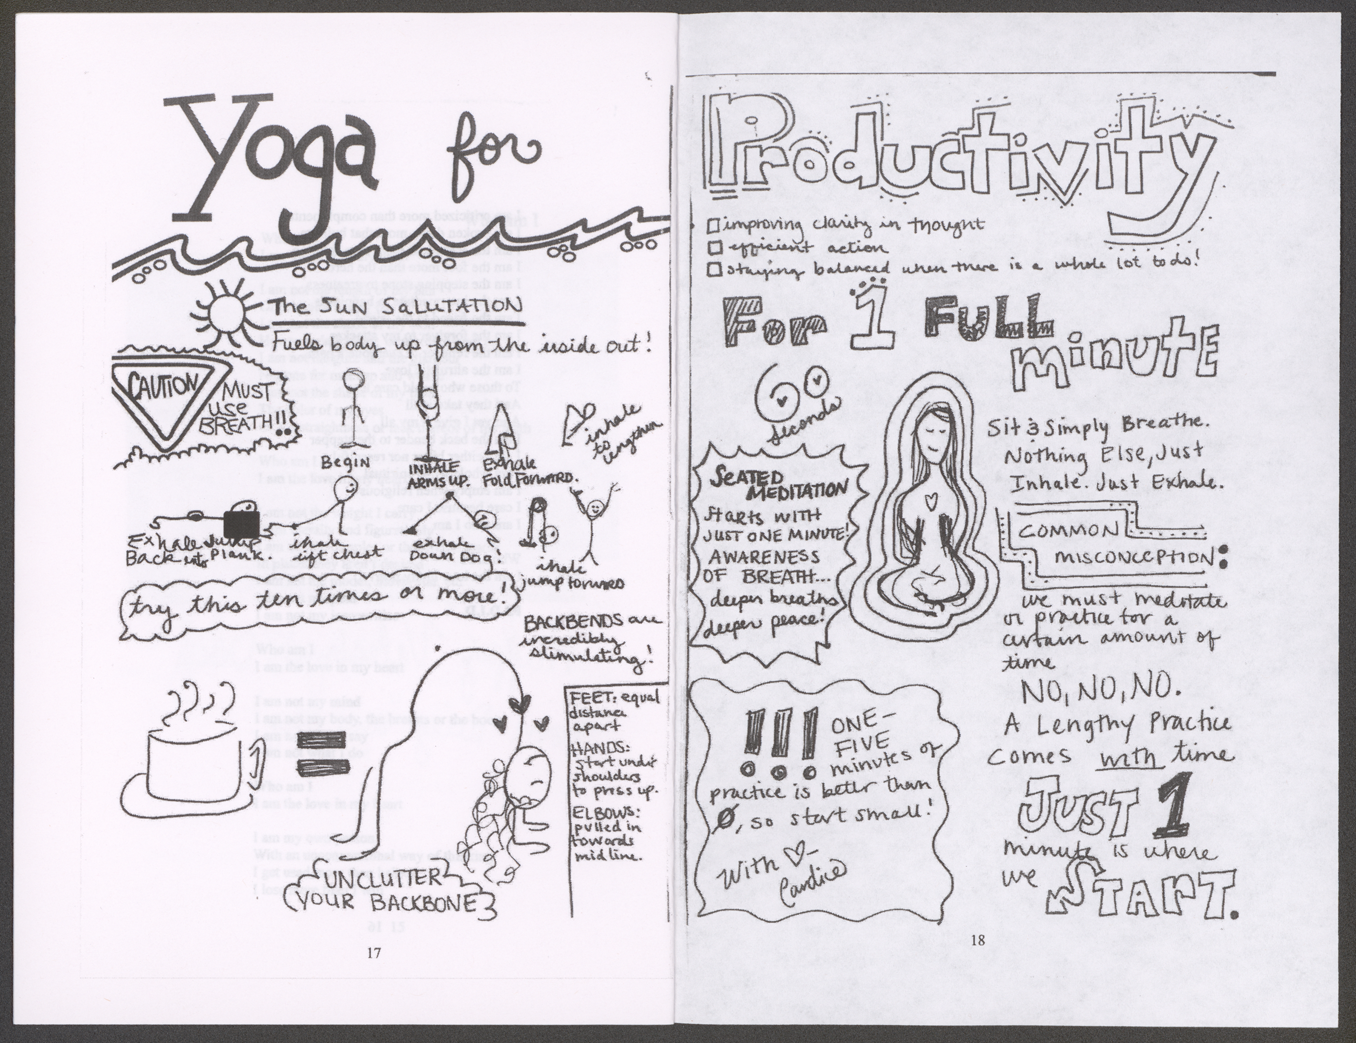 Yoga for
The SUN SaLUTATION
Fuels body up from the inside out!
CAUTION
MUST
use
BREATH!!
Begin
INHALE
ARMS UP.
Exhale
Fold Forward.
inhale
to
lengthen
Exhale Jump
Back into Plank.
inhale
lift chest
exhale
Down Dog!
inhale
jump forward
try this ten times or more!
BACKBENDS are
incredibly
stimulating!
=
FEET: equal
distance
apart
HANDS:
start under
shoulders
to press up.
ELBOWS:
pulled in
towards
midline.
UNCLUTTER
YOUR BACKBONE
17
Productivity
improving clarity in thought
efficient action
staying balanced when there is a whole lot to do!
For 1 FULL
minute
60
seconds
SEATED
MEDITATION
starts with
JUST ONE MINUTE!
AWARENESS
OF BREATH...
deeper breaths
deeper peace!
Sit & Simply Breathe.
Nothing Else, Just
Inhale. Just Exhale.
COMMON
MISCONCEPTION:
we must meditate
or practice for a
certain amount of
time
NO, NO, NO.
A Lengthy Practice
comes with time
JUST 1
minute is where
we START.
!!! ONE-
FIVE
minutes of
practice is better than
Ø, so start small!
With ♡-
Candice
18